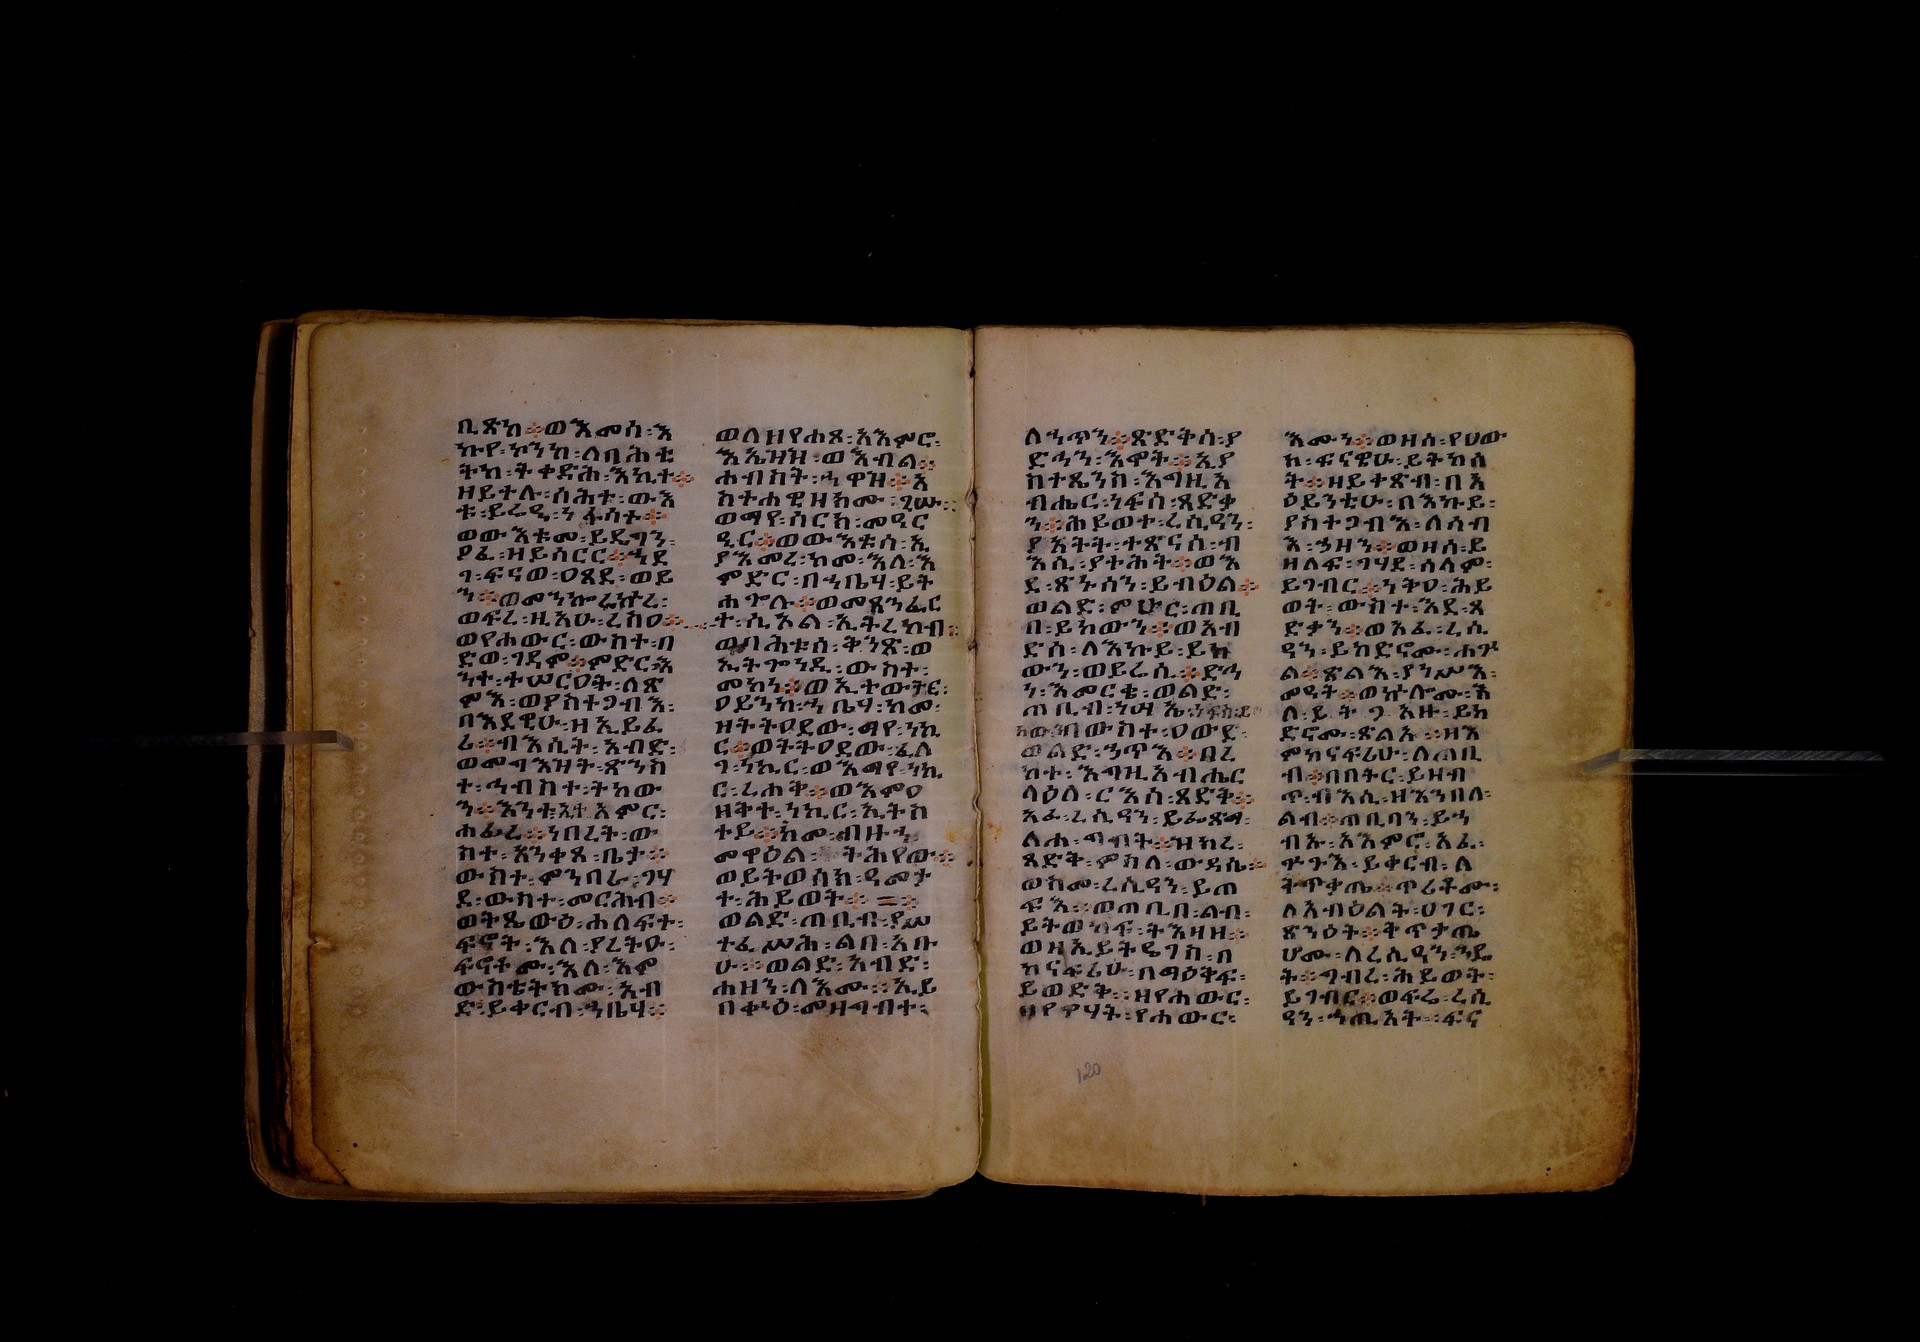 ቢጽከ፨ወእመሰ፡እ
ኩየ፡ኮንከ፡ለባሕቲ
ትከ፡ትቀድሕ፡እኪተ፨
ዘይተሉ፡ሰሕተ፡ውእ
ቱ፡ይሬዲ፡ነፋሳተ፨
ወውእቱመ፡ይዴግን፡
ዖፈ፡ዘይሰርር፨ኀደ
ገ፡ፍናወ፡ዐጸደ፡ወይ
ወፍረ፡ዚአሁ፡ረስዐ፨
ወየሐውር፡ውስተ፡በ
ድወ፡ገዳም፨ምድር፡እ
ንተ፡ተሠርዐት፡ለጽ
ምእ፡ወያስተጋብእ፡
በእደዊሁ፡ዘኢይፈ
ሪ፨ብእሲት፡አብድ፡
ወመግእዝት፡ጽንስ
ተ፡ኅብስተ፡ትከው
ን፨እንተ፡ኢተአምር፡
ሐፊረ፨ነበረት፡ው
ስተ፡አንቀጸ፡ቤታ፨
ውስተ፡ምንባራ፡ገሃ
ደ፡ውስተ፡መርሕብ፨
ወትጼውዕ፡ሐለፍተ፡
ፍኖት፡እለ፡ያረትዑ፡
ፍኖቶሙ፡እለ፡እም
ውስቴትክሙ፡አብ
ድ፡ይቀርብ፡ኀቤሃ፨
ወለዘየሐጸ፡አእምሮ፡
እኤዝዝ፡ወእብል፨
ሐብስት፡ኅዋዝ፨አ
ስተሐዊዘክሙ፡ገሡ፨
ወማየ፡ሰርቅ፡መዲር
ዲር፨ወውእቱሰ፡ኢ
ያእመረ፡ከመ፡እለ፡እ
ምድር፡በኀቤሃ፡ይት
ሐጐሉ፨ወመጸንፈር
ት፡ሲኦል፡ኢትረክብ፨
ወባሕቱሰ፡ቅንጽ፡ወ
ኢትጐንዲ፡ውስተ፡
መካን፨ወኢተውትር፡
ዐይንከ፡ኀቤሃ፡ከመ፡
ዘትትዐደው፡ማየ፡ነኪ
ር፨ወትትዐደው፡ፈለ
ገ፡ነኪር፡ወእማየ፡ነኪ
ር፡ረሐቅ፨ወእምዐ
ዘቅተ፡ነኪር፡ኢትስ
ተይ፨ከመ፡ብዙኅ፡
መዋዕል፡ትሕየው፨
ወይትወሰክ፡ዓመታ
ተ፡ሕይወት፨
ወልድ፡ጠቢብ፡ያሠ
ተፈሥሕ፡ልበ፡አቡ
ሁ፨ወልድ፡አብድ፡
ሐዘን፡ለእሙ፨ኢይ
በቍዕ፡መዘግብተ፡
ለኀጥን፨ጽድቅሰ፡ያ
ድኅን፡እሞት፨ኢያ
ስተጼንስ፡እግዚአ
ብሔር፡ነፍሰ፡ጻድቃ
ን፨ሕይወተ፡ረሲዓን፡
ያአትት፡ተጽናሰ፡ብ
እሲ፡ያተሕት፨ወእ
ደ፡ጽኑሰን፡ይብዕል፨
ወልድ፡ምሁር፡ጠቢ
በ፡ይከውን፨ወአብ
ድሰ፡ለእኩይ፡ይክ
ውን፡ወይረሲ፨ድኅ
ነ፡እመርቄ፡ወልድ፡
በውስተ፡ዐውድ፡
ወልድ፡ኃጥእ፨በረ
ከተ፡እግዚአብሔር
ላዕለ፡ርእሰ፡ጻድቅ፨
አፈ፡ረሲዓን፡ይፌጽም፡
ለሐ፡ግብት፨ዝክረ፡
ጻድቅ፡ምስለ፡ውዳሴ፨
ወከመ፡ረሲዓን፡ይጠ
ፍእ፨ወጠቢበ፡ልብ፡
ይትወከፍ፡ትእዛዘ፨
ወዘኢይትዔገስ፡በ
ከናፍሪሁ፡በማዕቅፍ፡
ይወድቅ፨ዘየሐውር፡
በየዋሃት፡የሐውር፡
እሙን፨ወዘሰ፡የሀው
ክ፡ፍናዊሁ፡ይትከሰ
ት፨ዘይቀጽብ፡በአ
ዕይንቲሁ፡በእኩይ፡
ያስተጋብእ፡ለሰብ
እ፡ኃዘን፨ወዘሰ፡ይ
ዘለፍ፡ገሃደ፡ሰላም፡
ይገብር፨ነቅዐ፡ሕይ
ወት፡ውስተ፡እደ፡ጻ
ድቃን፨ወአፈ፡ረሲ
ዓን፡ይከድኖሙ፡ሐጕ
ል፨ጽልእ፡ያነሥእ፡
መዓት፨ወኵሎሙ፡እ
ለ፡ይትጋአዙ፡ይከ
ድኖሙ፡ጽልእ፨ዘእ
ምከናፍሪሁ፡ለጠቢ
ብ፨በበትር፡ይዘብ
ጥ፡ብእሲ፡ዘእንበለ፡
ልብ፨ጠቢባን፡ይኀ
ብኡ፡አእምሮ፡አፈ፡
ጕጉእ፡ይቀርብ፡ለ
ትጥቃጤ፨ጥሪቶሙ፡
ለአብዕልት፡ሀገር፡
ጽንዕት፨ትጥታጤ
ሆሙ፡ለረሲዓን፡ንዴ
ት፨ግብረ፡ሕይወት፡
ይገብር፨ወፍሬ፡ረሲ
ዓን፡ኀጢአት፨ፍና
120